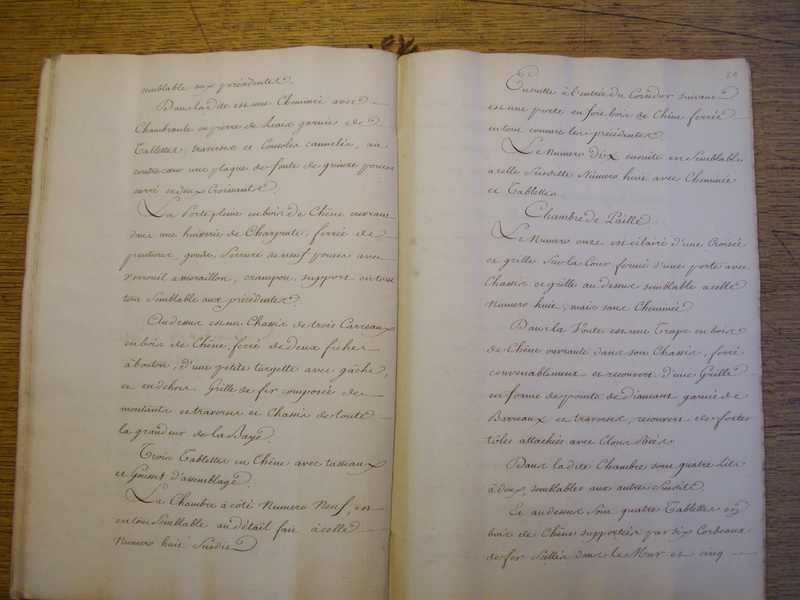 semblable aux précédentes.
Dans la dite est une Cheminée avec
Chambranle en pierre de Liais garnie de
Tablettes, traverses et Consoles cannelés, au
contrecœur une plaque de fonte de quinze pouces
carré et deux Croissants.
La Porte pleine en bois de Chêne ouvrant
dans une huisserie de Charpente, ferrée de
pentures, gonds, Serrure de neuf pouces avec
verrouil a moraillon, crampon, support en tout
tout semblable aux précédentes.
Au dessus est un Chassis de trois Carreaux
en bois de Chêne, ferré de deux fiches
à bouton, d'une petite targette avec gâche,
et en dehors Grille de fer composée de
montants et traverses et Chassis de toute
la grandeur de la Baye.
Trois Tablettes en Chêne avec tasseaux
et Gousset d'assemblage.
La Chambre à côté Numero Neuf, est
en tout Semblable au détail fait à celle
Numero huit Susdit.
20
Ensuitte à l'entrée du Corridor suivant
est une porte en fort bois de Chêne ferrée
en tout comme les précédentes.
Le Numero Dix ensuite en Semblable
a celle Susditte Numero huit avec Cheminée
et Tablettes.
Chambre de Paille.
Le Numero onze est éclairé d'une Croisée
et grille Sur la Cour fermé d'une porte avec
Chassis et grille au dessus semblable a celle
Numero huit, mais sans Cheminée.
Dans la Voute est une Trape en bois
de Chêne ouvrante dans son Chassis, ferré
convenablement et recouvert d'une Grille
en forme de pointe de diamant garnie de
Barreaux et traverses, recouvert de fortes
tôles attachées avec Clous Rivés.
Dans la dite Chambre sont quatre Lits
à deux, semblables aux autres Susdits.
Le au dessus Sont quatre Tablettes en
bois de Chêne supportées par six Corbeaux
de fer Scellés dans le Mur et cinq